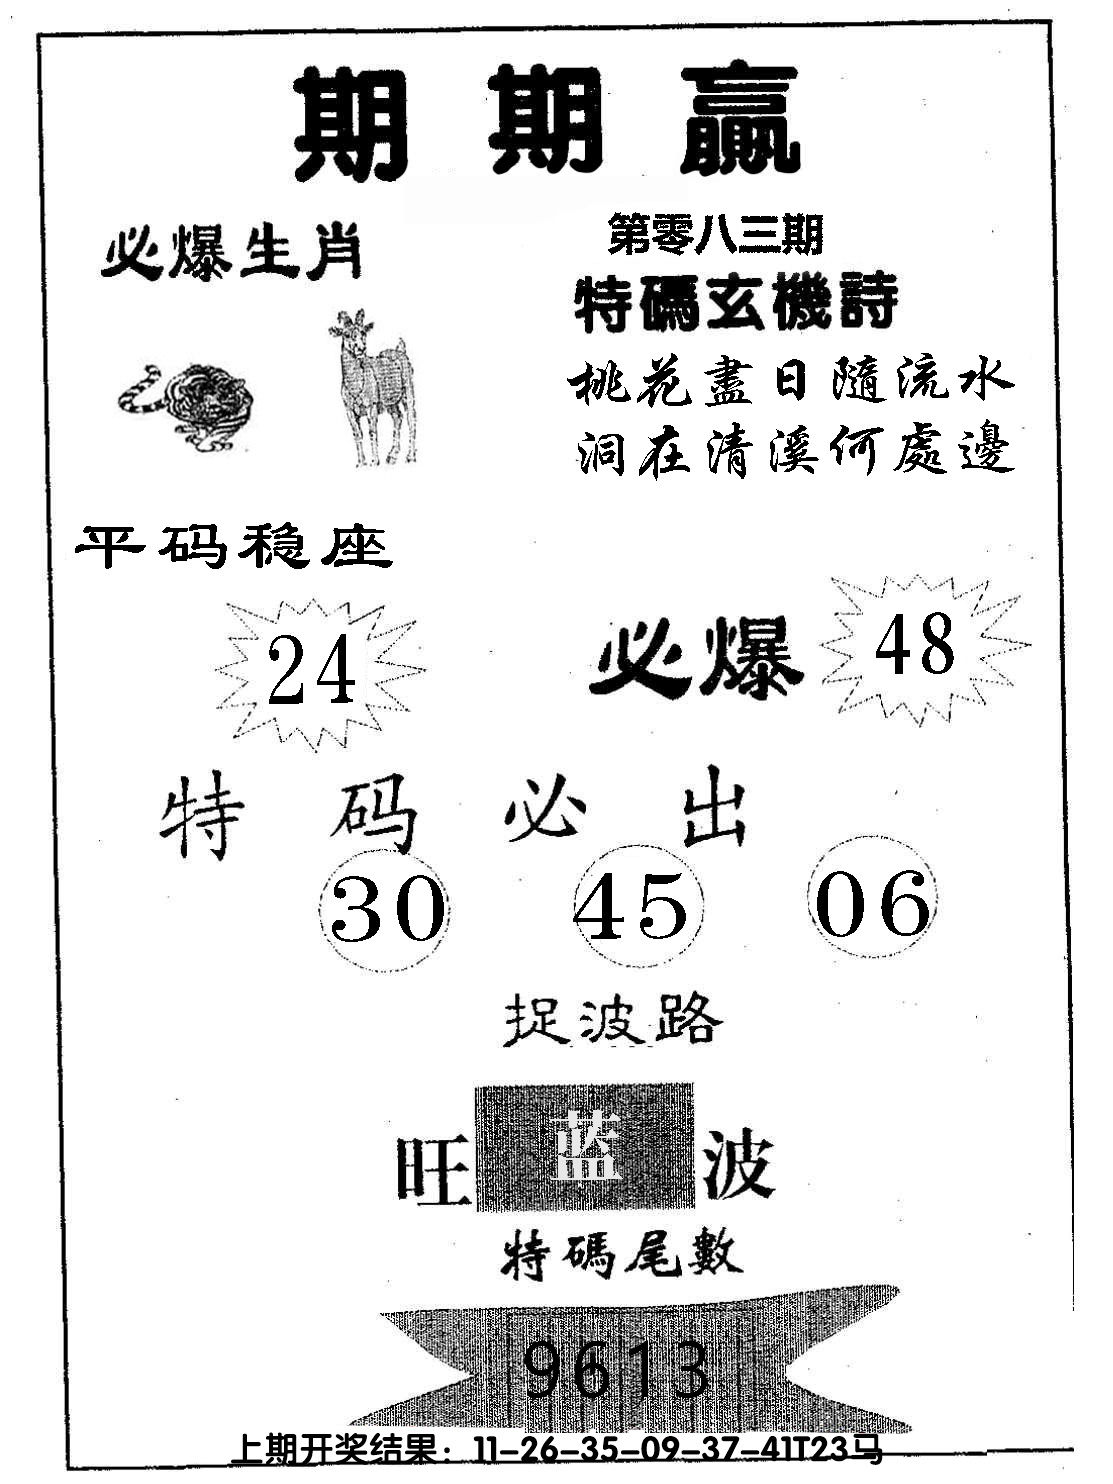 期期贏
必爆生肖
第零八三期
特碼玄機詩
桃花盡日隨流水
洞在清溪何處邊
平码稳座
24
必爆 48
特码必出
30 45 06
捉波路
旺 蓝 波
特碼尾數
9613
上期开奖结果：11-26-35-09-37-41T23马